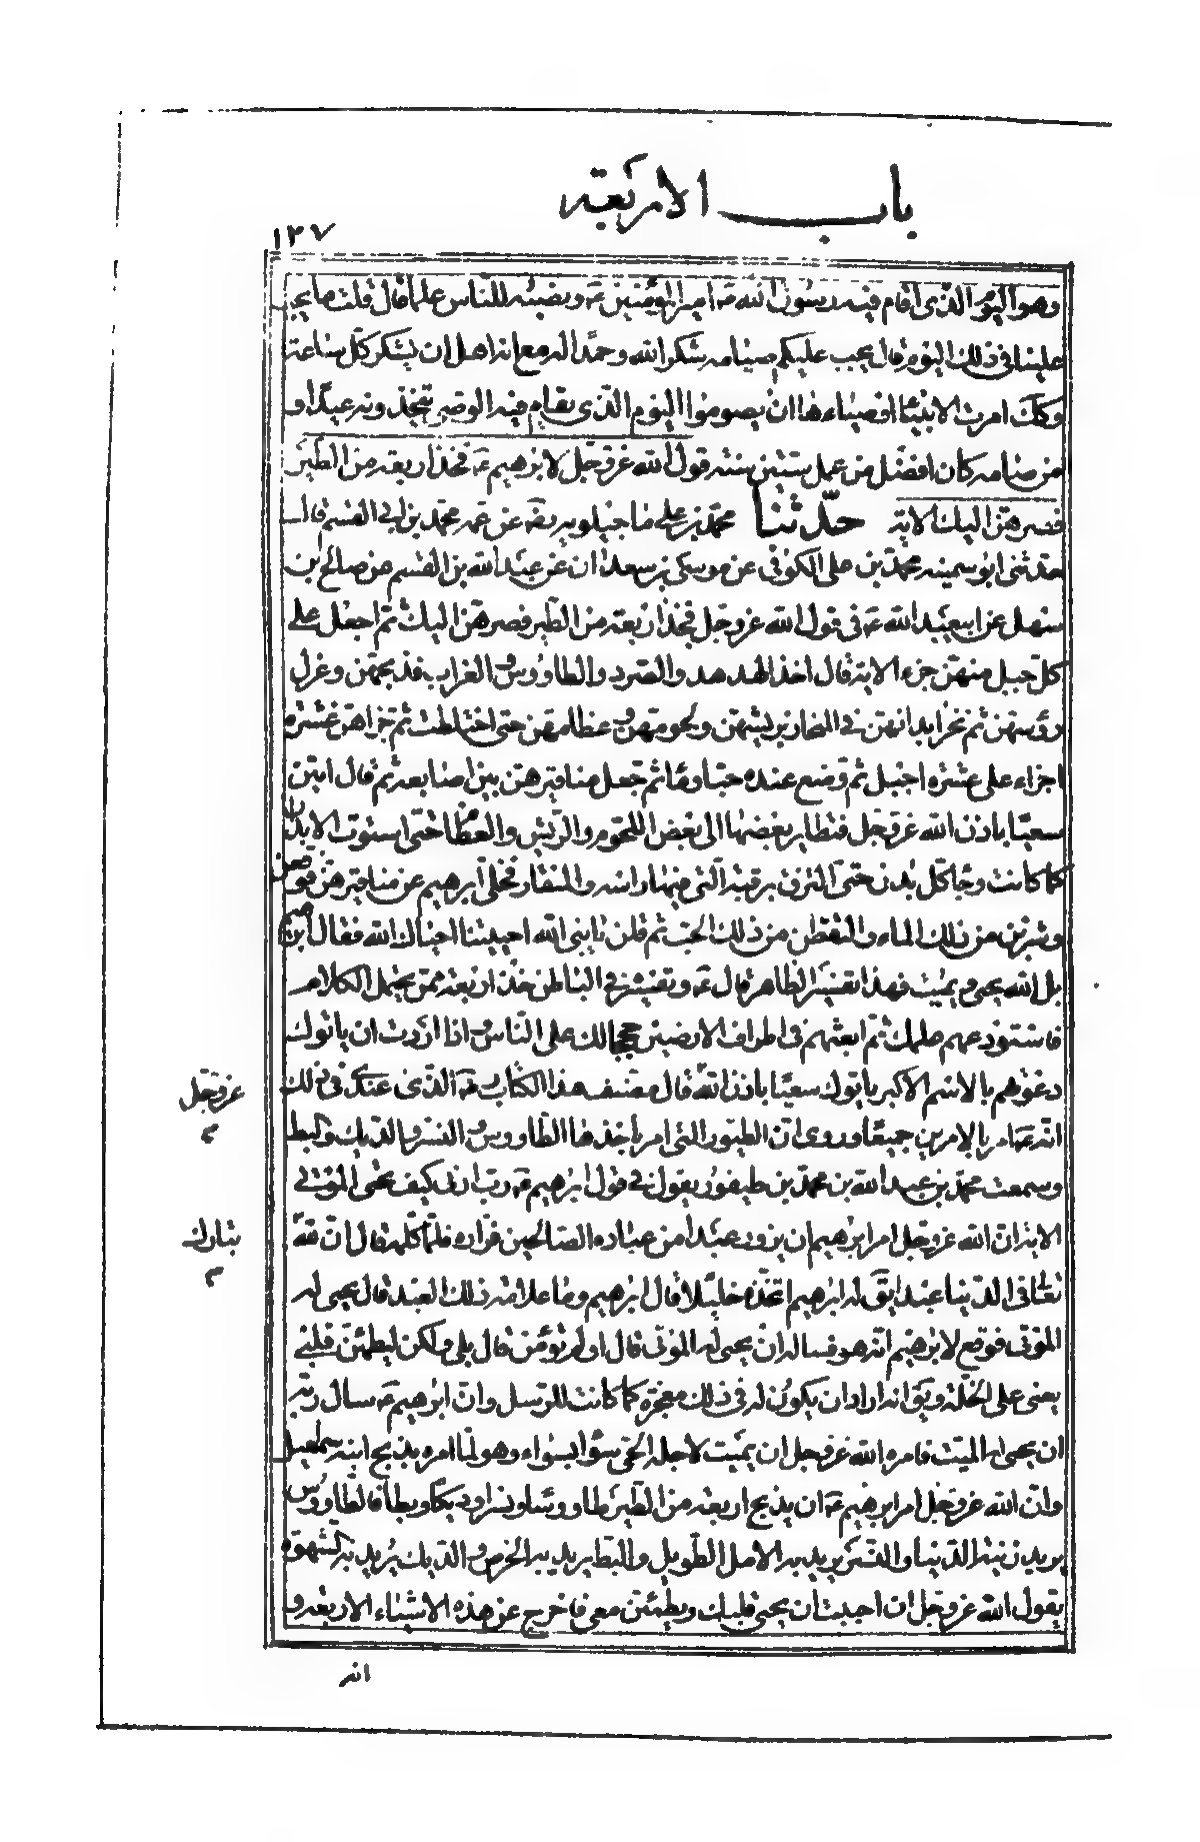 باب الاربعة
١٢٧
وهو اليوم الذى اقام فيه رسول الله ص امير المؤمنين ع ونصبه للناس علما قال قلت ما يجب
علينا فى ذلك اليوم قال يجب عليكم صيامه شكرا لله وحمدا له مع انه اهل ان يشكر كل ساعة
وكك امرت الانبياء اوصياءها ان يصوموا اليوم الذى يقام فيه الوصى تتخذونه عيدا و
من صامه كان افضل من عمل ستين سنة قول الله عز وجل لابرهيم ع فخذ اربعة من الطير
فصرهن اليك الاية حدثنا محمد بن على ماجيلويه رضه عن عمه محمد بن ابى القسم قال
حدثنى ابو سمينه محمد بن على الكوفى عن موسى بن سعدان عن عبد الله بن القسم عن صالح بن
سهل عن ابيعبد الله ع فى قول الله عز وجل فخذ اربعة من الطير فصرهن اليك ثم اجعل على
كل جبل منهن جزء الاية قال اخذ الهدهد والصرد والطاووس والغراب فذبحهن وعزل
رؤسهن ثم نحز ابدانهن فى المنحاز بريشهن ولحومهن وعظامهن حتى اختلطت ثم جزاهن عشرة
اجزاء على عشرة اجبل ثم وضع عنده حبا وماء ثم جعل مناقيرهن بين اصابعه ثم قال ايتين
سعيا باذن الله عز وجل فتطاير بعضها الى بعض اللحوم والريش والعظام حتى استوت الابدان
كما كانت وجاء كل بدن حتى التزق برقبته التى فيها راسه والمنقار فخلى ابرهيم عن مناقيرهن فوقعن
وشربن من ذلك الماء والتقطن من ذلك الحب ثم قلن يا نبى الله احييتنا احياك الله فقال ابرهيم
بل الله يحيى ويميت فهذا تفسير الظاهر قال ع وتفسيره فى الباطن خذ اربعة ممن يحتمل الكلام
فاستودعهم علمك ثم ابعثهم فى اطراف الارضين حججا لك على الناس واذا اردت ان ياتوك
دعوهم بالاسم الاكبر ياتوك سعيا باذن الله قال مصنف هذا الكتاب ره الذى عندى فى ذلك
انه ع امر بالامرين جميعا وروى ان الطيور التى امر باخذها الطاووس والنسر والديك والبط
وسمعت محمد بن عبد الله بن محمد بن طيفور يقول فى قول ابرهيم ع رب ارنى كيف تحيى الموتى
الاية ان الله عز وجل امر ابرهيم ان يزور عبدا من عباده الصالحين فزاره فلما كلمه قال ان لله
تعالى فى الدنيا عبدا يق له ابرهيم اتخذه خليلا قال ابرهيم وما علامة ذلك العبد قال يحيى له
الموتى فوقع لابرهيم انه هو فساله ان يحيى له الموتى قال اولم تؤمن قال بلى ولكن ليطمئن قلبى
يعنى على الخلة ويق انه اراد ان يكون له فى ذلك معجزة كما كانت للرسل وان ابرهيم ع سال ربه
ان يحيى له الميت فامره الله عز وجل ان يميت لاجله الحى سواء بسواء وهو لما امره بذبح ابنه اسمعيل
وان الله عز وجل امر ابرهيم ع ان يذبح اربعة من الطير طاووسا ونسرا وديكا وبطا فالطاووس
يريد زينة الدنيا والنسر يريد به الامل الطويل والبط يريد به الحرص والديك يريد به الشهوة
يقول الله عز وجل ان احببت ان يحيى قلبك ويطمئن معى فاخرج عن هذه الاشياء الاربعة و
عز وجل
م
تبارك
م
انه